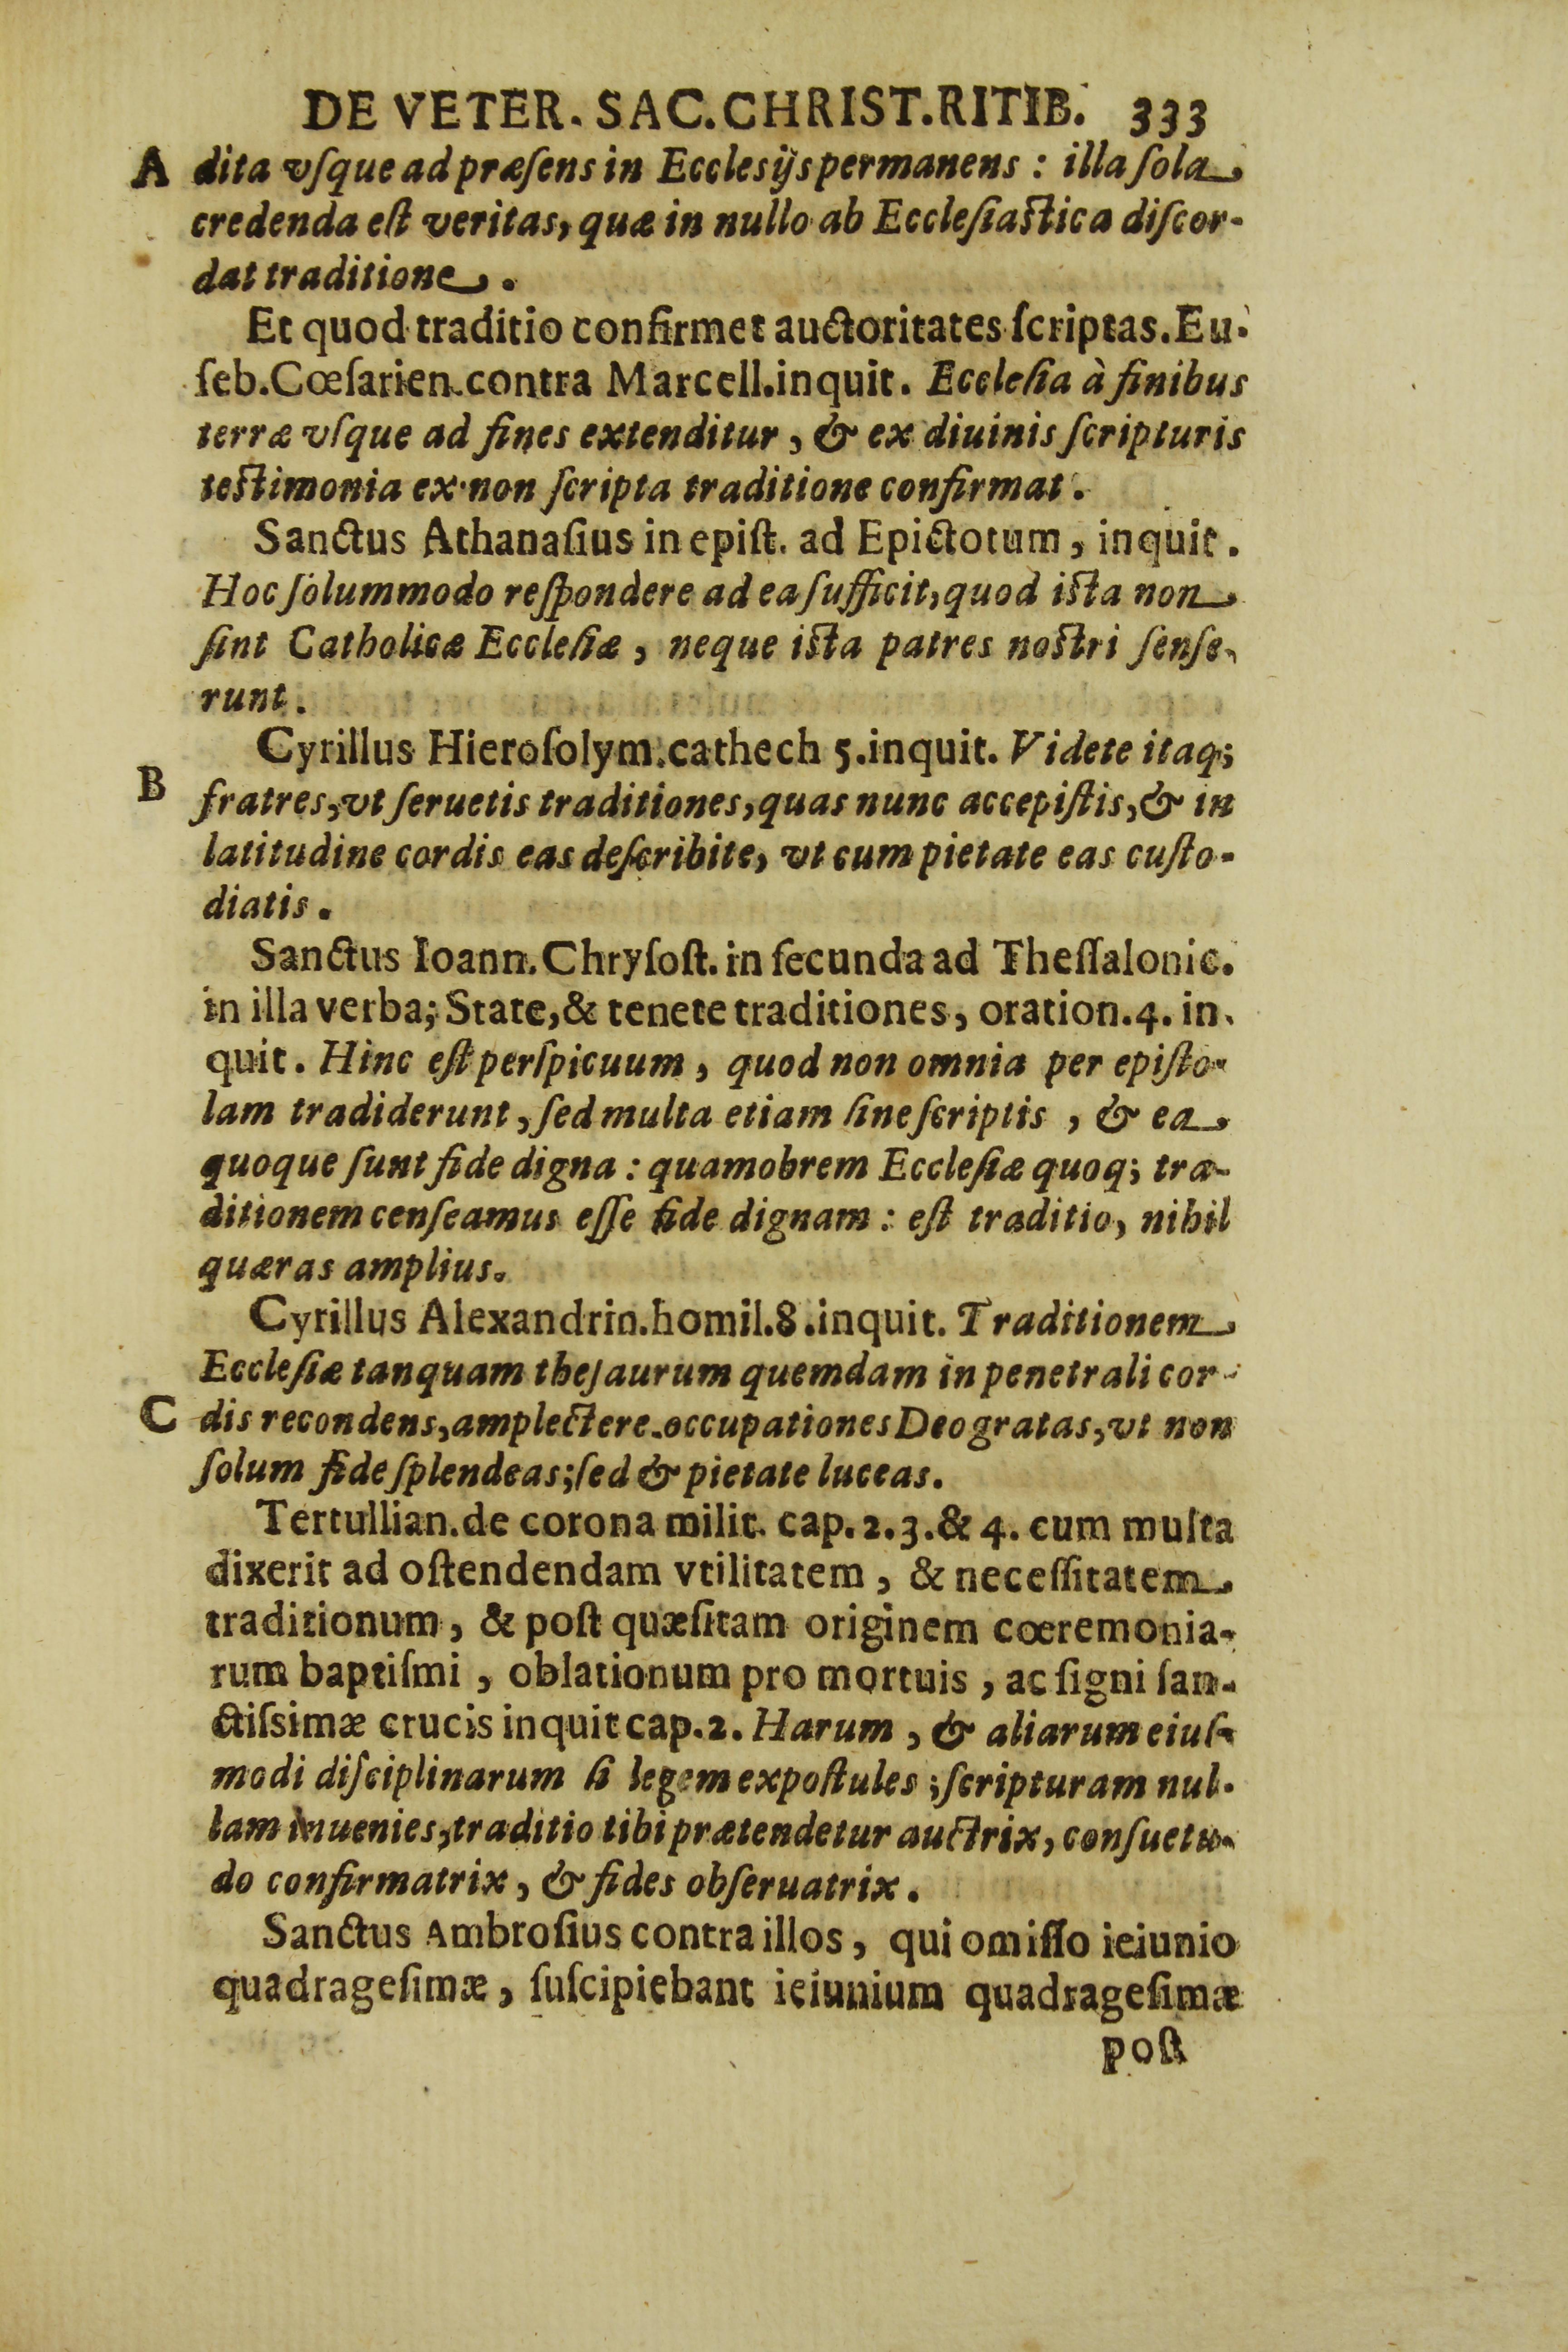 DE VETER. SAC. CHRIST. RITIB. 333
A dita vſque ad præſens in Ecclesijs permanens : illa ſola
credenda eſt veritas, quæ in nullo ab Eccleſiaſtica diſcor-
dat traditione .
Et quod traditio confirmet auctoritates ſcriptas. Eu-
ſeb. Cœſarien. contra Marcell. inquit. Eccleſia à finibus
terræ vſque ad fines extenditur , & ex diuinis ſcripturis
teſtimonia ex non ſcripta traditione confirmat .
Sanctus Athanaſius in epiſt. ad Epictotum , inquit .
Hoc ſolummodo reſpondere ad ea ſufficit, quod iſta non
ſint Catholicæ Eccleſiæ , neque iſta patres noſtri ſenſe-
runt .
Cyrillus Hieroſolym. cathech 5. inquit. Videte itaq;
B
fratres, vt ſeruetis traditiones, quas nunc accepiſtis, & in
latitudine cordis eas deſcribite, vt cum pietate eas cuſto-
diatis .
Sanctus Ioann. Chryſoſt. in ſecunda ad Theſſalonic.
in illa verba; State, & tenete traditiones , oration. 4. in-
quit . Hinc eſt perſpicuum , quod non omnia per epiſto-
lam tradiderunt , ſed multa etiam ſine ſcriptis , & ea
quoque ſunt fide digna : quamobrem Eccleſiæ quoq; tra-
ditionem cenſeamus eſſe fide dignam : eſt traditio, nihil
quæras amplius.
Cyrillus Alexandrin. homil. 8. inquit. Traditionem
Eccleſiæ tanquam theſaurum quemdam in penetrali cor-
C dis recondens, amplectere occupationes Deo gratas, vt non
ſolum fide ſplendeas; ſed & pietate luceas.
Tertullian. de corona milit. cap. 2. 3. & 4. cum multa
dixerit ad oſtendendam vtilitatem , & neceſſitatem
traditionum , & poſt quæſitam originem cœremonia-
rum baptiſmi , oblationum pro mortuis , ac ſigni ſan-
ctiſsimæ crucis inquit cap. 2. Harum , & aliarum eiuſ-
modi diſciplinarum ſi legem expoſtules ; ſcripturam nul-
lam inuenies, traditio tibi prætendetur auctrix, conſuetu-
do confirmatrix , & fides obſeruatrix .
Sanctus Ambroſius contra illos , qui omiſſo ieiunio
quadrageſimæ , ſuſcipiebant ieiunium quadrageſimæ
poſt